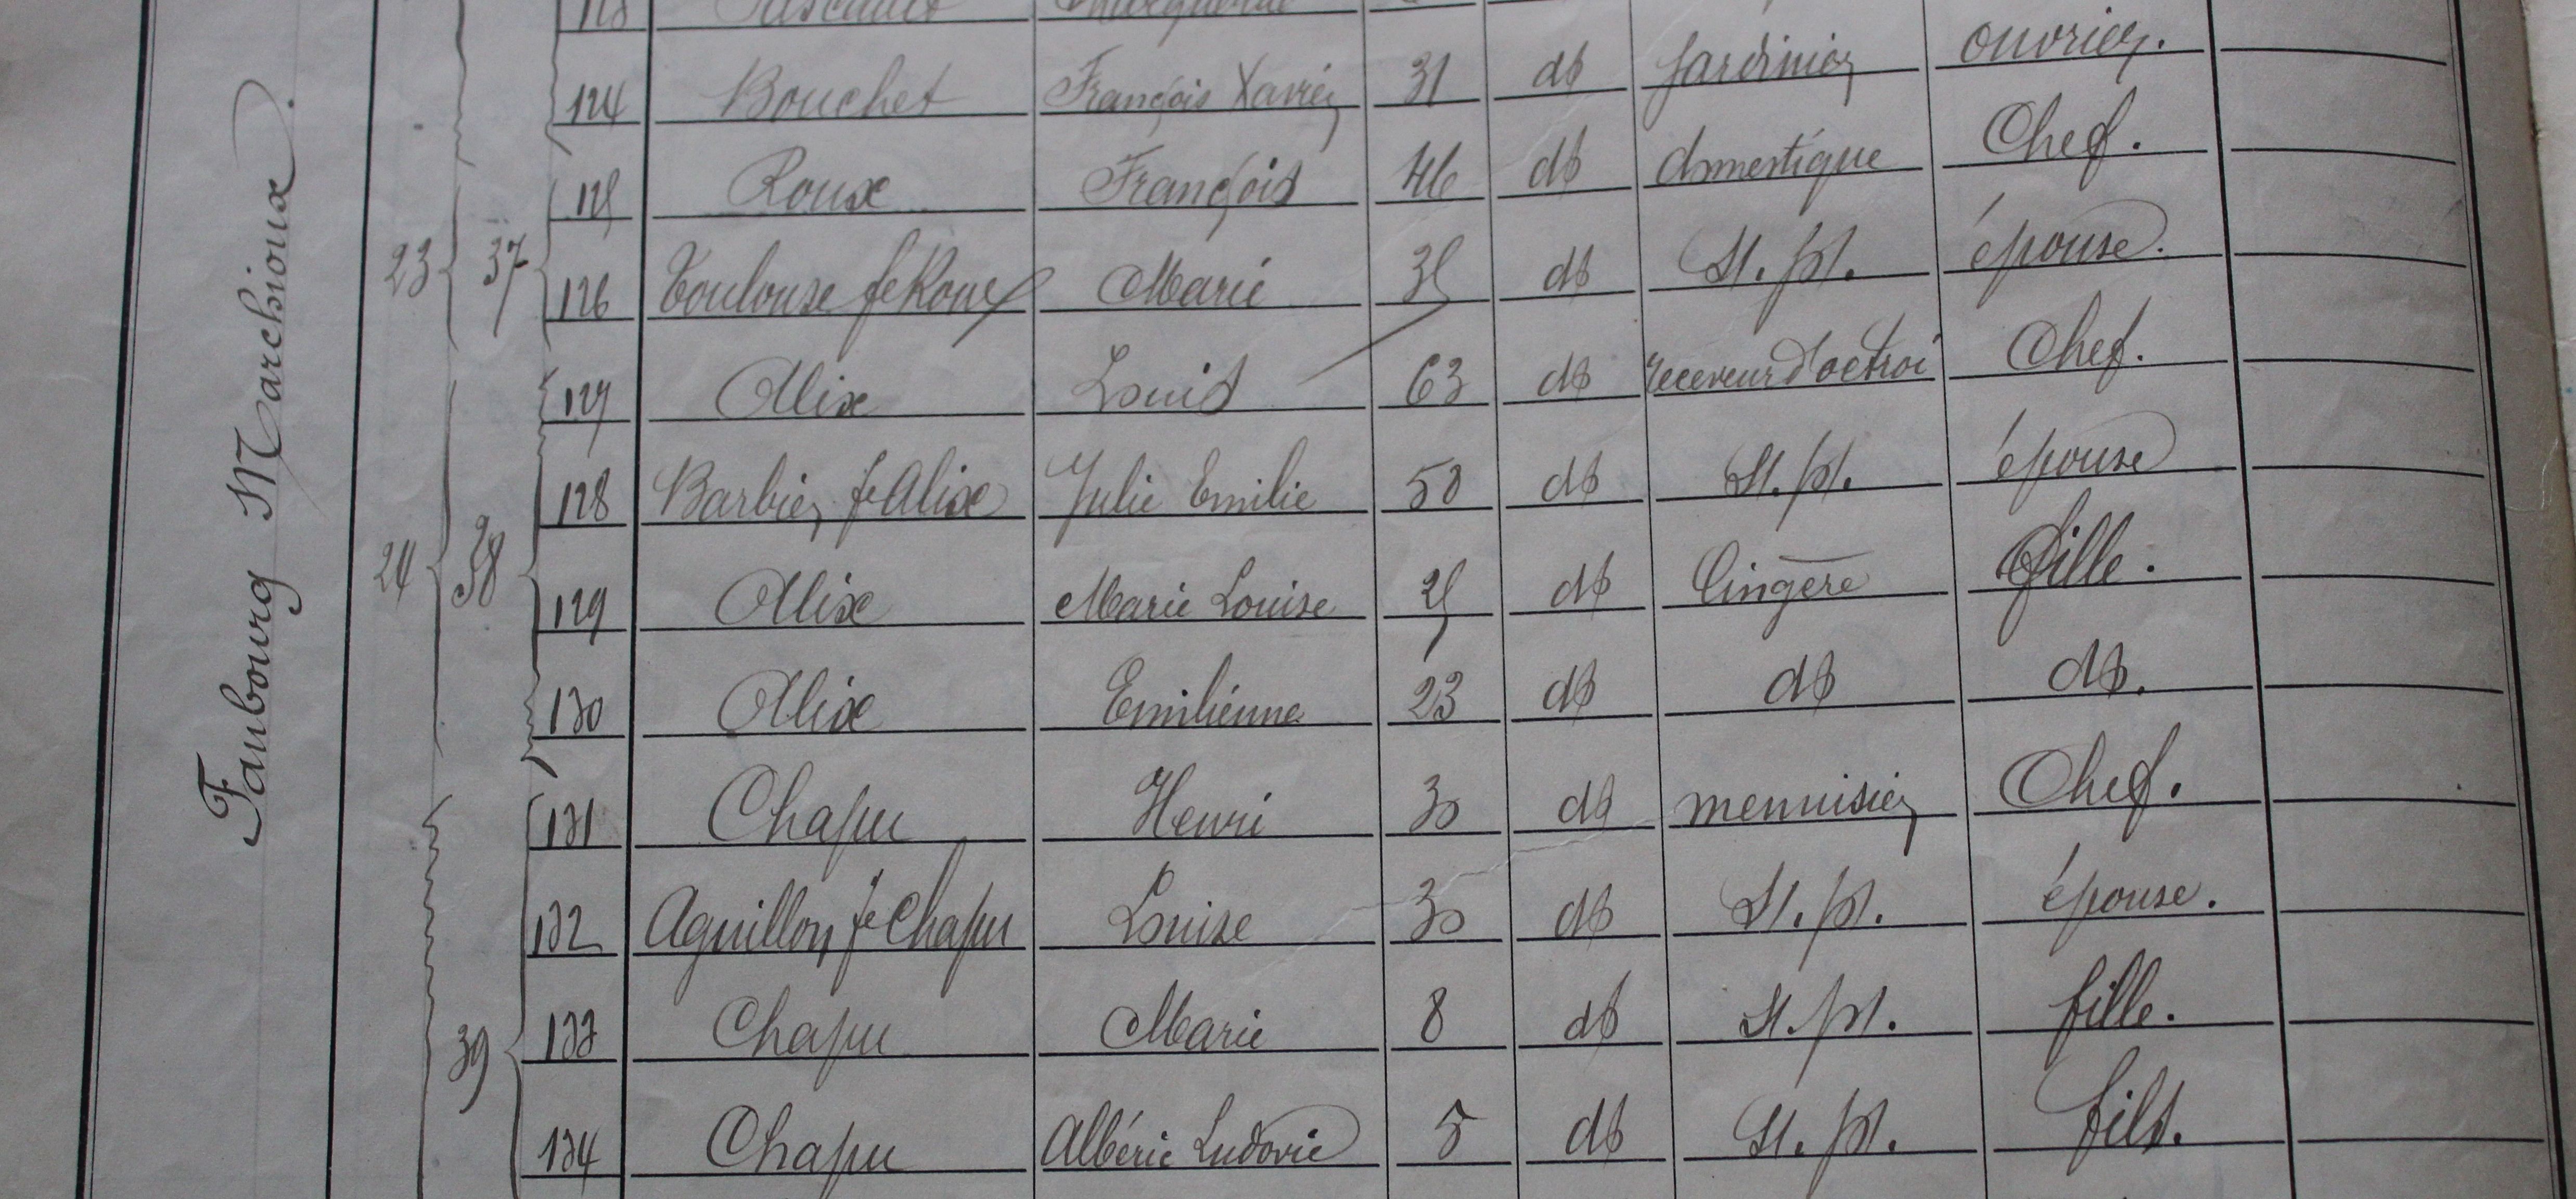 Faubourg Marchioux.
124 Bouchet François Xavier 31 do jardinier ouvrier.
125 Roux François 46 do domestique Chef.
23 37
126 Toulouse fe Roux Marie 35 do St. pn. épouse.
127 Alix Louis 63 do receveur d'octroi Chef.
128 Barbier fe Alix Julie Emilie 58 do St. pn. épouse
24 38
129 Alix Marie Louise 25 do lingère fille.
130 Alix Emilienne 23 do do do.
131 Chapu Henri 30 do menuisier Chef.
132 Aguillon fe Chapu Louise 30 do St. pn. épouse.
133 Chapu Marie 8 do St. pn. fille.
39
134 Chapu Albéric Ludovic 5 do St. pn. fils.